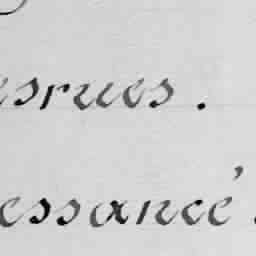 esrues.
essancé.